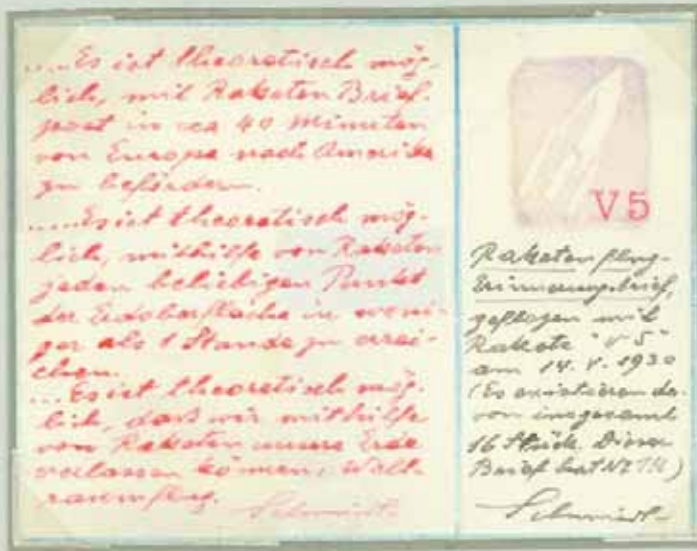 .....Es ist theoretisch mög-
lich, mit Raketen Brief-
post in ca 40 Minuten
von Europa nach Amerika
zu befördern.
.....Es ist theoretisch mög-
lich, mithilfe von Raketen
jeden beliebigen Punkt
der Erdoberfläche in weni-
ger als 1 Stunde zu errei-
chen.
... Es ist theoretisch mög-
lich, daß wir mithilfe
von Raketen unsere Erde
verlassen können, Welt-
raumflug.
Schmiedl
V5
Raketenflug-
Erinnerungsbrief,
geflogen mit
Rakete "V 5"
am 14. V. 1930
(Es existieren da-
von insgesamt
16 Stück. Dieser
Brief hat Nr.)
Schmiedl